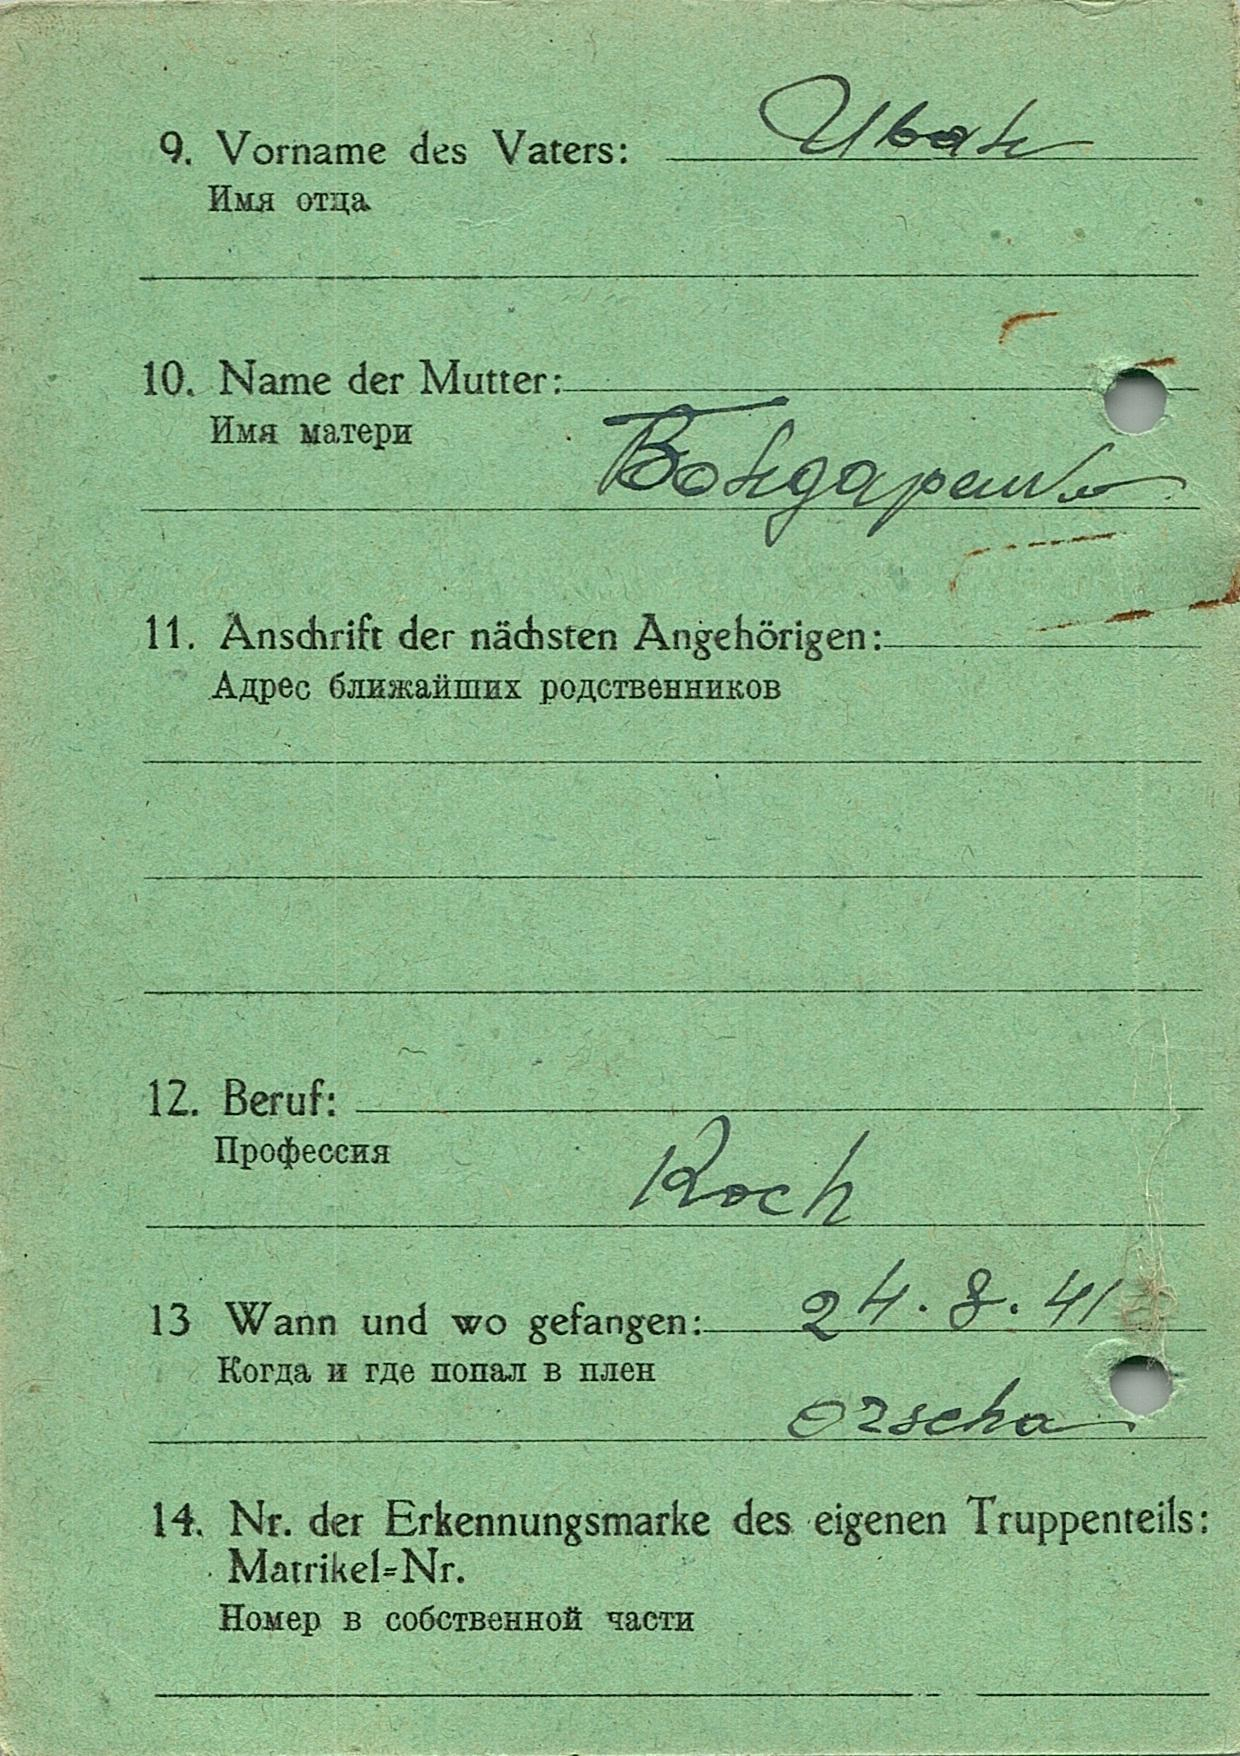 9. Vorname des Vaters: Иван
Имя отца
10. Name der Mutter:
Имя матери
Бондаренко
11. Anschrift der nächsten Angehörigen:
Адрес ближайших родственников
12. Beruf:
Профессия
Koch
13 Wann und wo gefangen: 24.8.41
Когда и где попал в плен
Orscha
14. Nr. der Erkennungsmarke des eigenen Truppenteils:
Matrikel=Nr.
Номер в собственной части